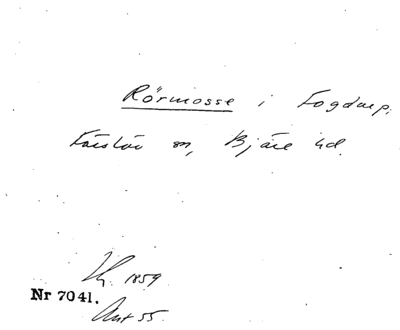 Rörmosse i Fogdarp.
Förslöv sn, Bjäre hd.
Hg. 1859
Nr 7041.
Ant 55.